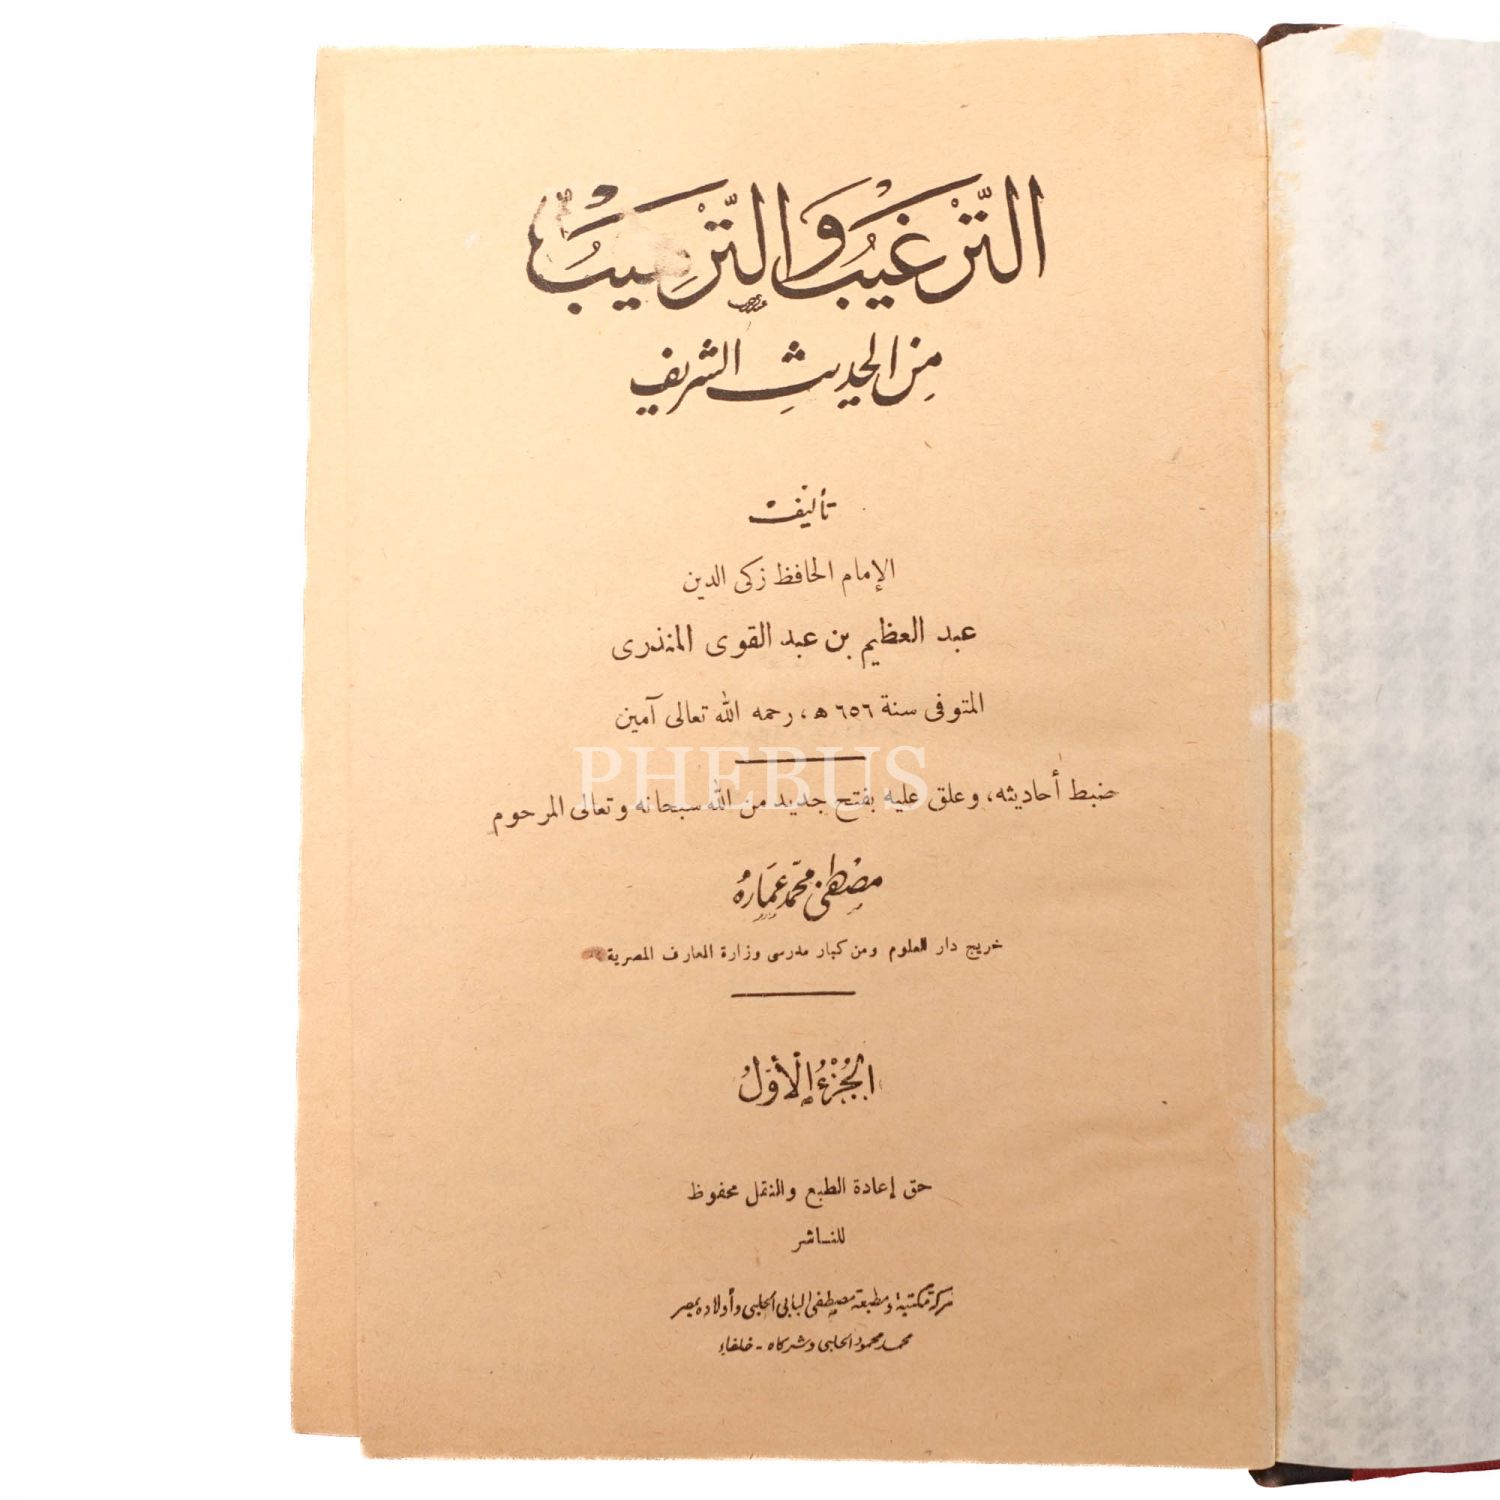 التَّرْغيبُ وَالتَّرْهِيبْ
مِنَ الحديثِ الشريف
تأليف
الإمام الحافظ زكى الدين
عبد العظيم بن عبد القوى المنذرى
المتوفى سنة ٦٥٦ ھ، رحمه الله تعالى آمين
PHEBUS
ضبط أحاديثه، وعلق عليه بفتح جديد من الله سبحانه وتعالى المرحوم
مصطفى محمّد عمَارهُ
خريج دار العلوم ومن كبار مدرسى وزارة المعارف المصرية
الجُزْءُ الأوَّلُ
حق إعادة الطبع والنقل محفوظ
للناشر
شركة مكتبة ومطبعة مصطفى البابى الحلبى وأولاده بمصر
محمد محمود الحلبى وشركاه - خلفاء